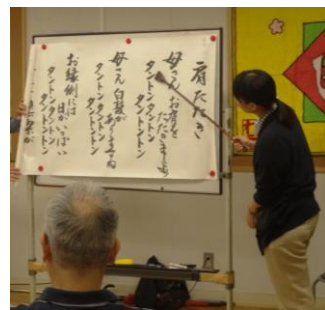 肩たたき
母さん お肩を
たたきましょう
タントンタントン
タントントン
母さん 白髪が
ありますね
タントンタントン
タントントン
お縁側には
日がいっぱい
タントンタントン
タントントン